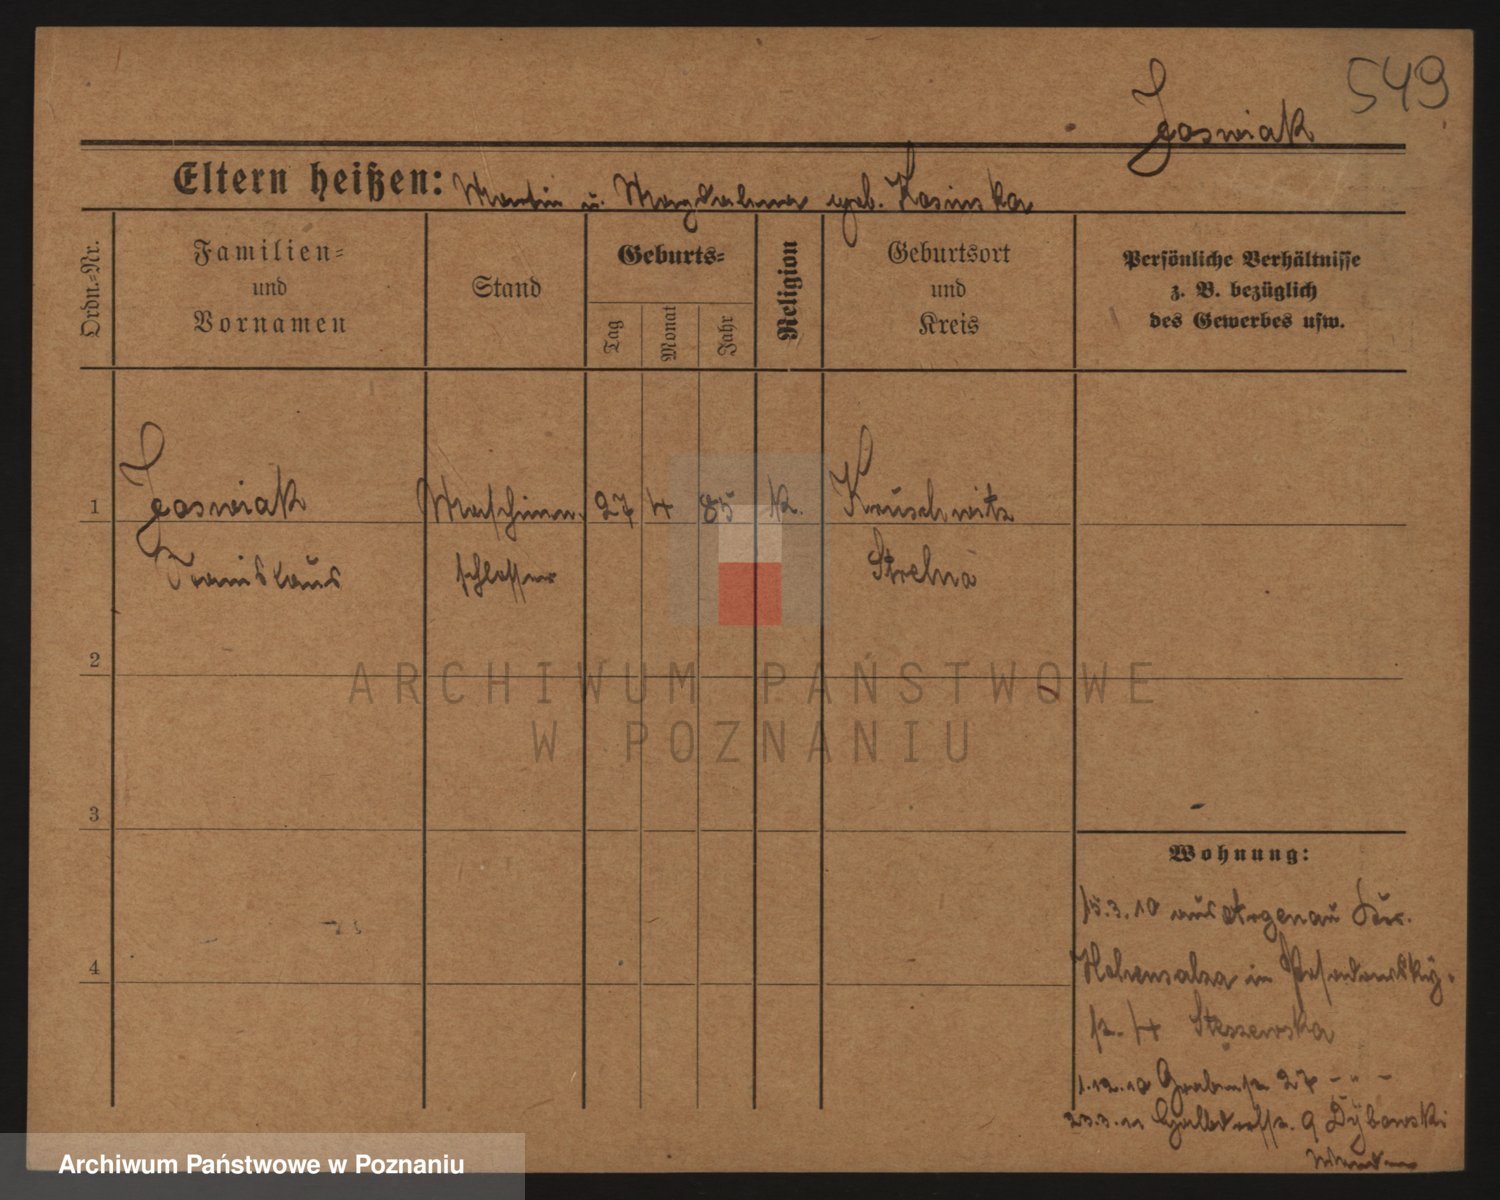 549
Joswiak
Eltern heißen: Martin u. Magdalena geb. Kosinska
Ordn.-Nr.
Familien-
und
Vornamen
Stand
Geburts-
Tag
Monat
Jahr
Religion
Geburtsort
und
Kreis
Persönliche Verhältnisse
z. B. bezüglich
des Gewerbes usw.
1
Joswiak
Maschinen
27 4 85 k.
Kruschwitz
Stanislaus
schlosser
Strelno
2
ARCHIWUM PAŃSTWOWE
W POZNANIU
3
Wohnung:
15.3.10 aus Argenau
Hohensalza in
4
1.12.10 Grabenstr 27 - " -
23.3.11 9 Dybowski
Archiwum Państwowe w Poznaniu